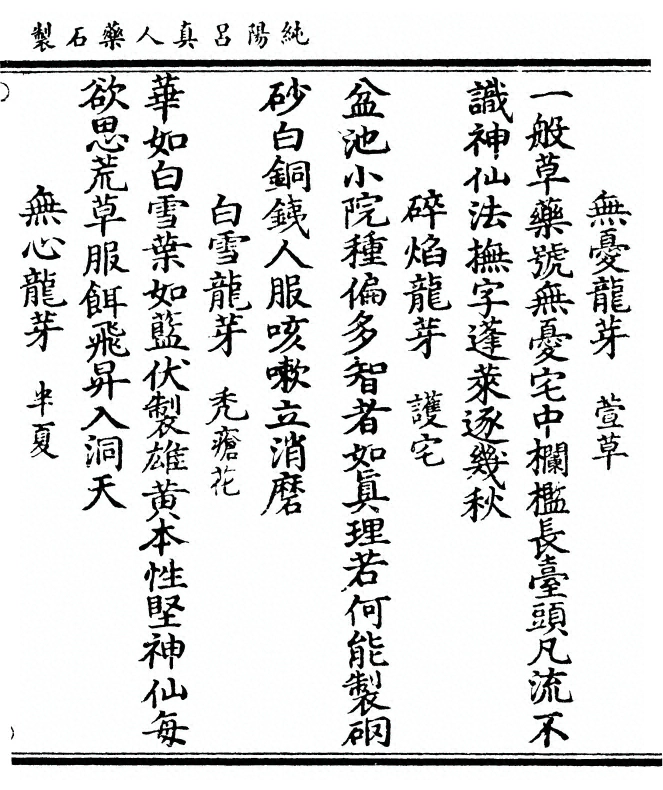 純陽呂真人藥石製
無憂龍芽 萱草
一般草藥號無憂宅中欄檻長臺頭凡流不
識神仙法撫字蓬萊逐幾秋
碎焰龍芽 護宅
盆池小院種偏多智者如眞理若何能製硇
砂白銅銕人服咳嗽立消磨
白雪龍芽 禿瘡花
華如白雪葉如藍伏製雄黃本性堅神仙每
欲思荒草服餌飛昇入洞天
無心龍芽 半夏